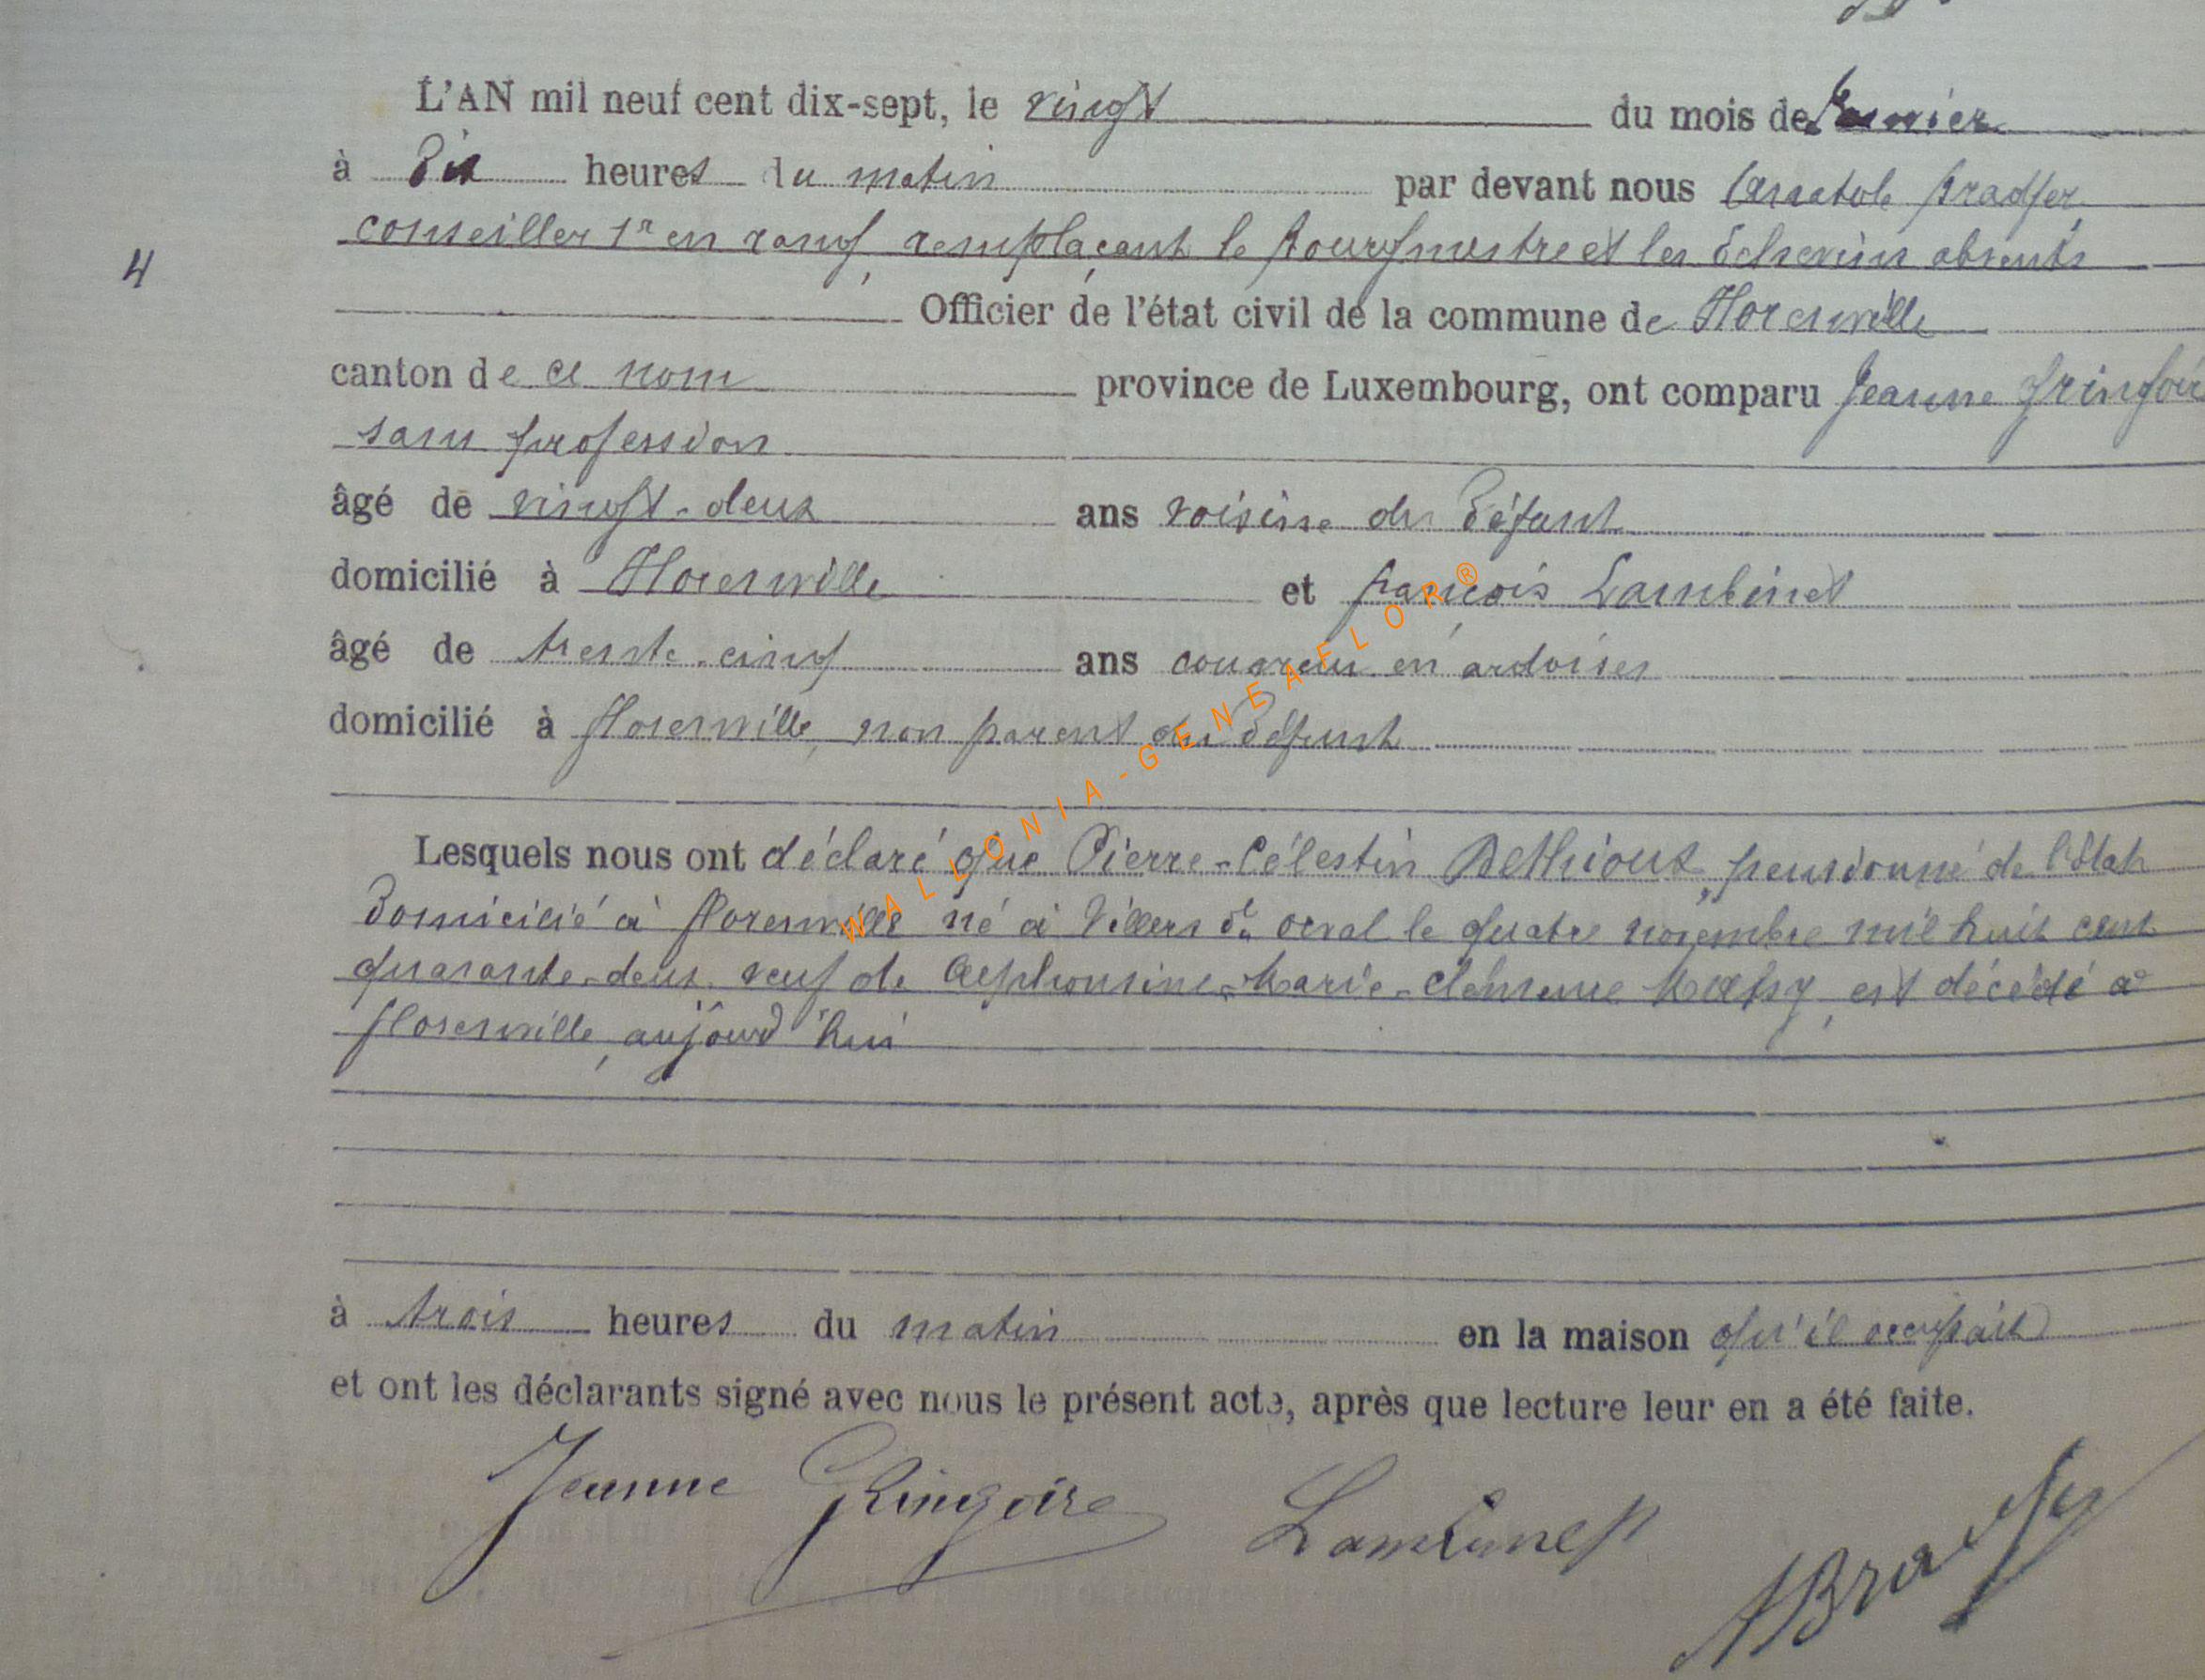 L'AN mil neuf cent dix-sept, le vingt du mois de Janvier
à Dix heures du matin par devant nous Anatole Bradfer
conseiller 1r en rang, remplaçant le bourgmestre et les Echevins absents
4
Officier de l'état civil de la commune de Florenville
canton de ce nom province de Luxembourg, ont comparu Jeanne Gringoire
sans profession
âgé de vingt-deux ans voisine du Défunt
domicilié à Florenville et François Lambinet
âgé de trente-cinq ans couvreur en ardoises
domicilié à Florenville, non parent du Défunt
Lesquels nous ont déclaré que Pierre-Célestin Dethioux, pensionné de l'Etat
Domicilié à Florenville né à Villers dt Orval le quatre novembre mil huit cent
quarante-deux, veuf de Alphonsine-Marie-Clémence, est décédé à
Florenville, aujourd'hui
à trois heures du matin en la maison qu'il occupait
et ont les déclarants signé avec nous le présent acte, après que lecture leur en a été faite.
Jeanne Gringoire Lambinet ABradfer
WALLONIA-GENEAFLOR®